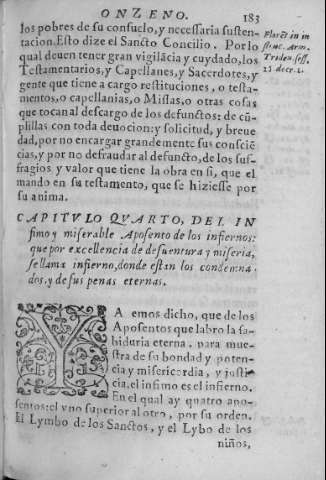 ONZENO. 183
los pobres de su consuelo, y necessaria susten-
tacion. Esto dize el Sancto Concilio. Por lo
qual deuen tener gran vigilãcia y cuydado, los
Testamentarios, y Capellanes, y Sacerdotes, y
gente que tiene a cargo restituciones, o testa-
mentos, o capellanias, o Missas, o otras cosas
que tocan al descargo de los defunctos: de cũ-
plillas con toda deuocion: y solicitud, y breue
dad, por no encargar grandemente sus consciẽ
cias, y por no defraudar al defuncto, de los suf-
fragios y valor que tiene la obra en si, que el
mando en su testamento, que se hiziesse por
su anima.
Trident. sess.
25. decr. 1.
CAPITVLO QVARTO, DEL IN
fimo y miserable Aposento de los infiernos:
que por excellencia de desuentura y miseria,
se llama infierno, donde estan los condemna
dos, y de sus penas eternas.
YA emos dicho, que de los
Aposentos que labro la sa-
biduria eterna, para mue-
stra de su bondad y poten-
cia y misericordia, y justi
cia, el infimo es el infierno.
En el qual ay quatro apo-
sentos: el vno superior al otro, por su orden.
El Lymbo de los Sanctos, y el Lybo de los
niños,